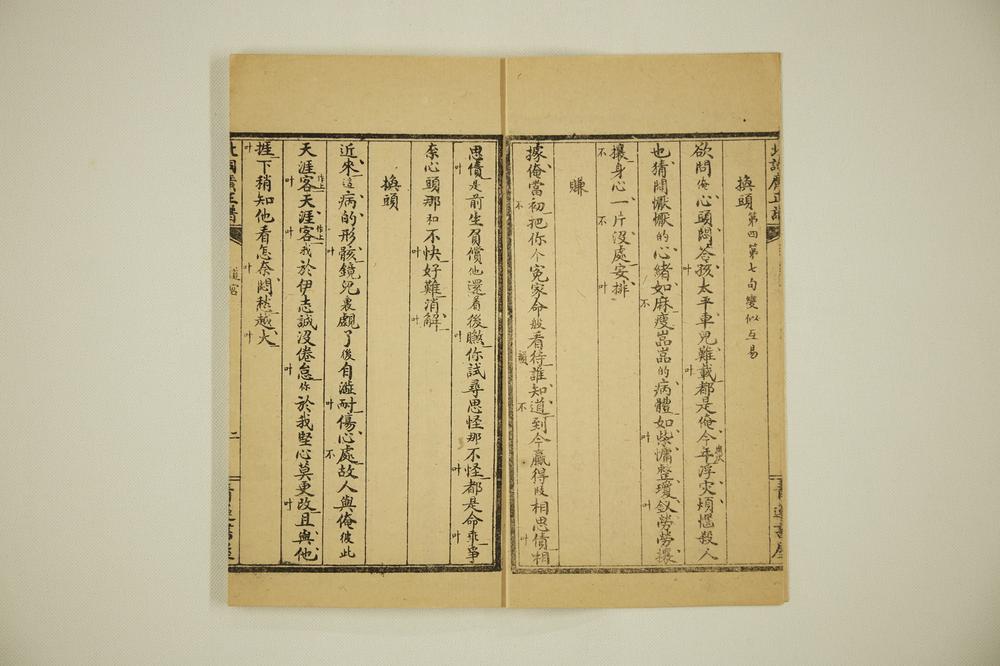 北詞廣正譜
青蓮書屋
換頭 第四第七句變似互易
欲問俺心頭悶答孩太平車兒難載都是俺今年浮災煩惱殺人
也猜悶懨懨的心緒如麻瘦嵓嵓的病體如柴慵整瓊釵勞勞攘
攘身心一片沒處安排
賺
據俺當初把你个冤家命般看待誰知道到今贏得段相思債相
思債是前生負償他還着後瞰你試尋思怪那不怪都是命乖爭
柰心頭那和不快好難消解
換頭
近來這病的形骸鏡兒裏覷了後自澁耐傷心處故人與俺彼此
天涯客天涯客我於伊志誠沒倦怠你於我堅心莫更改且與他
捱下稍知他看怎柰悶愁越大
二